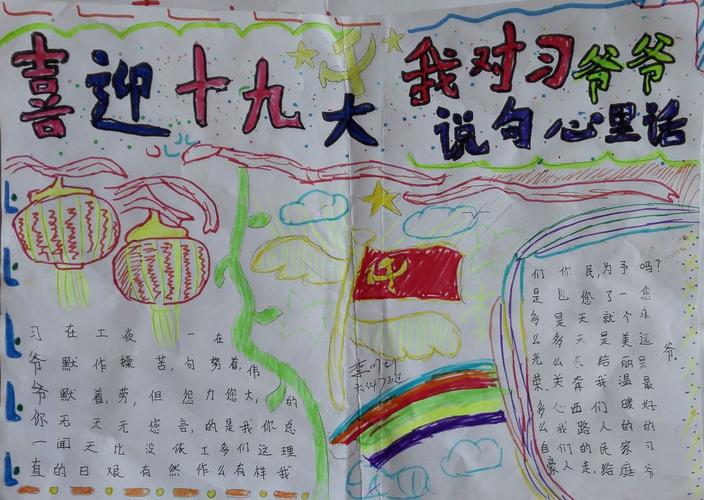 喜迎十九大
我对习爷爷
说句心里话
习爷爷你一直
在默默无闻的
工作着,天天日
夜操劳,无比艰
苦,但您没有
一句怨言,依然
在努力的工作
着,您是多么
伟大,我们有
的你这样
总理我
们是多么光荣多么自豪
你也是多么关心我们人
民,您天天去奔西路的走,
为了就是给我们人民给
予一个美丽温暖的家庭
吗?您永远是最好的习爷
爷。